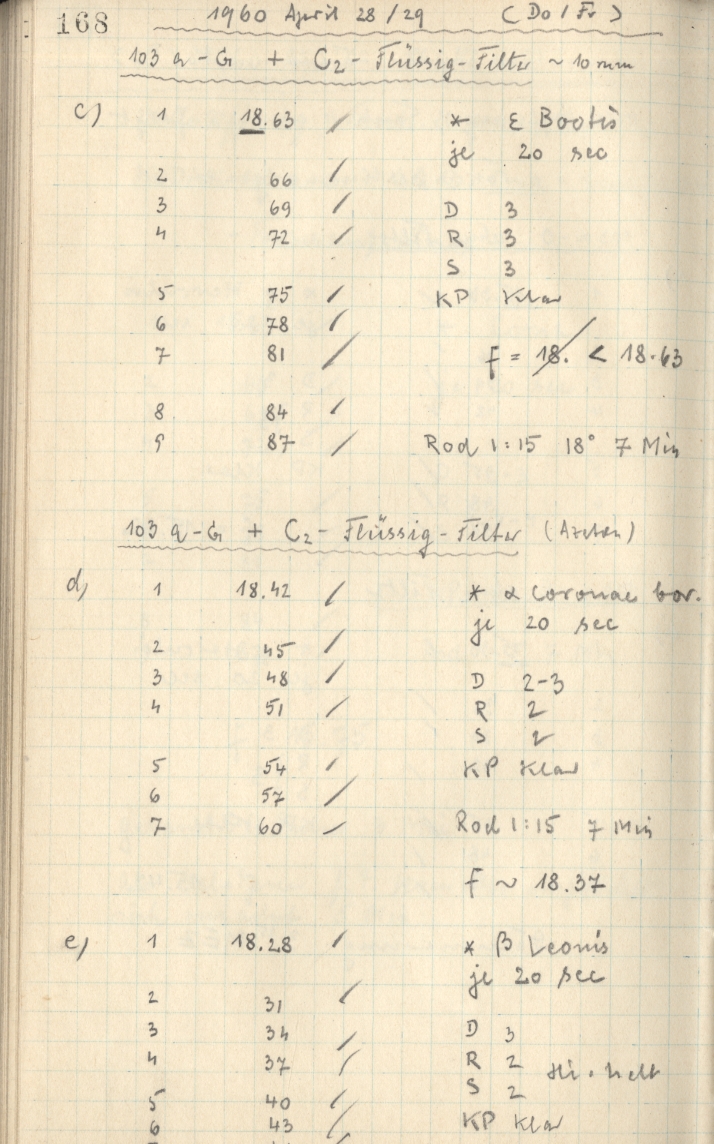 168 1960 April 28/29 (Do/Fr)
103 a-G + C2-Flüssig-Filter ~ 10 mm
c) 1 18.63 / * ε Bootis
je 20 sec
2 66 /
3 69 / D 3
4 72 / R 3
S 3
5 75 / KP Klar
6 78 /
7 81 / f = 18. < 18.63
8 84 /
9 87 / Rod 1:15 18° 7 Min
103 a-G + C2-Flüssig-Filter (Azeton)
d) 1 18.42 / * α Coronae bor.
je 20 sec
2 45 /
3 48 / D 2-3
4 51 / R 2
S 2
5 54 / KP Klar
6 57 /
7 60 / Rod 1:15 7 Min
f ~ 18.37
e) 1 18.28 / * β Leonis
je 20 sec
2 31 /
3 34 / D 3
4 37 / R 2
S 2
5 40 /
6 43 / KP Klar